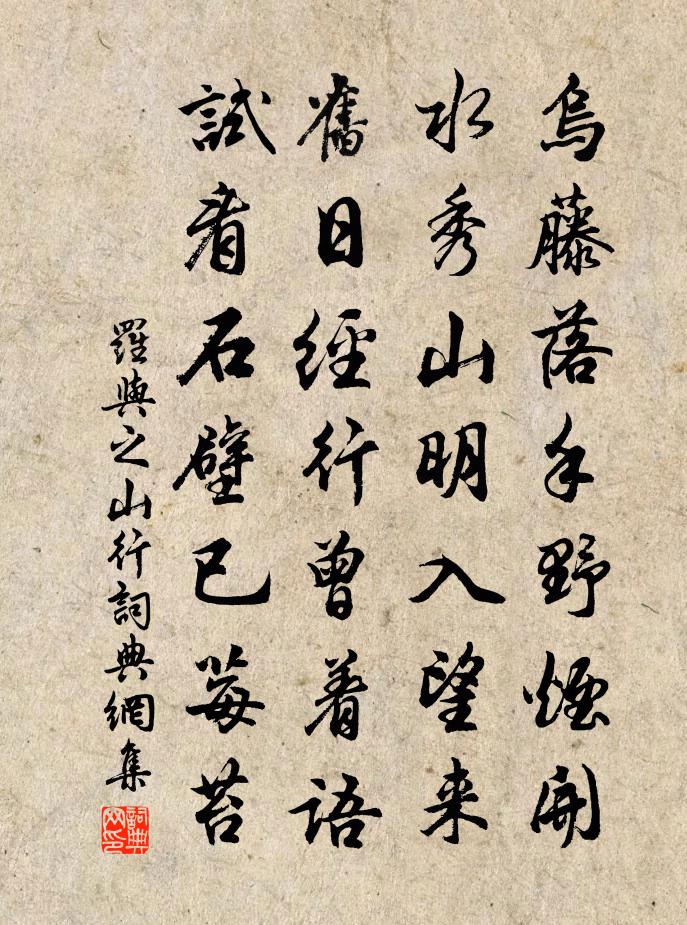 烏藤落手野煙開
水秀山明入望来
舊日經行曾着語
試看石壁已莓苔
羅與之山行詞典網集
詞典网印